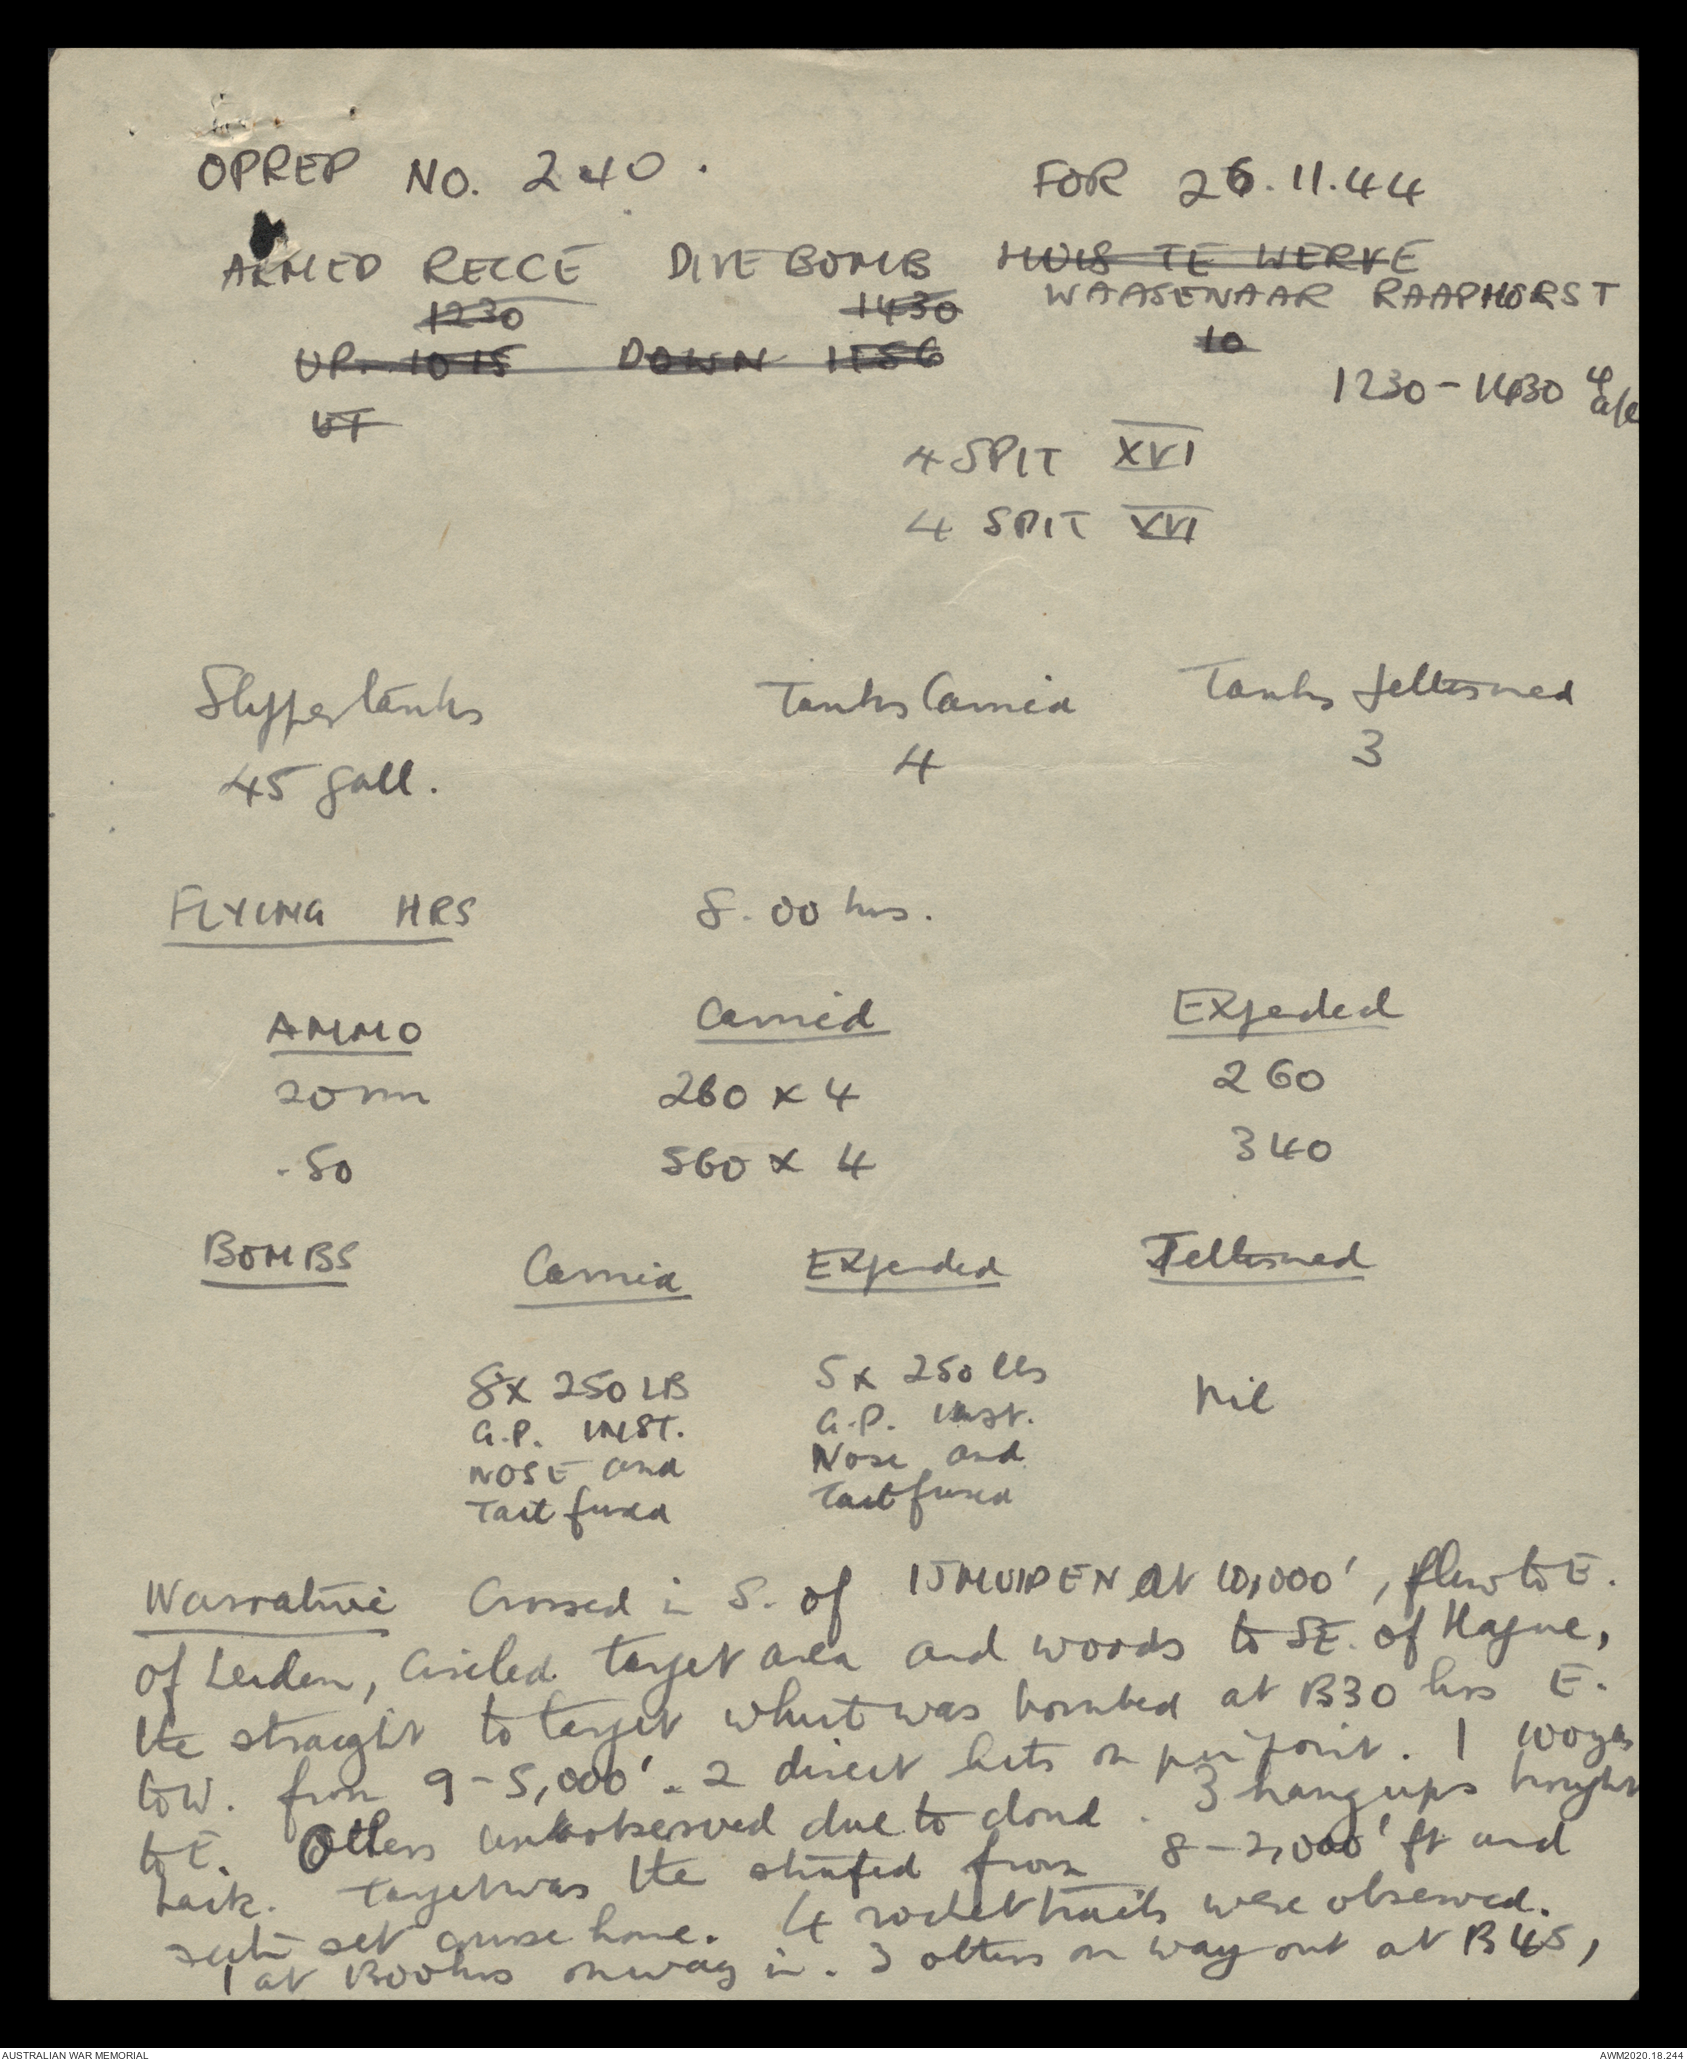 OPREP NO. 240.
FOR 26.11.44
ARMED RECCE DIVE BOMB HUIS TE WERVE
WAASENAAR RAAPHORST
1230 1430
UP. 1015 DOWN 1156
10
1230 - 1430 4 a/c
UT
4 SPIT XVI
4 SPIT XVI
Slipper tanks Tanks Carried Tanks Jettisoned
45 gall. 4 3
FLYING HRS 8.00 hrs.
AMMO Carried Expended
20 mm 260 x 4 260
.50 560 x 4 340
BOMBS Carried Expended Jettisoned
8 x 250 LB 5 x 250 lbs Nil
G.P. INST. G.P. Inst.
NOSE and Nose and
Tail fused Tail fused
Narrative Crossed in S. of IJMUIDEN at 10,000', flew to E.
of Leiden, circled target area and woods to SE. of Hague,
the straight to target which was bombed at 1330 hrs E.
to W. from 9 - 5,000'. 2 direct hits on pin point. 1 100 yds
to E. Others unobserved due to cloud. 3 hang ups brought
back. Target was the strafed from 8 - 2,000' ft and
set course home. 4 rocket trails were observed.
1 at 1300 hrs on way in. 3 others on way out at 1345,
AUSTRALIAN WAR MEMORIAL
AWM2020.18.244